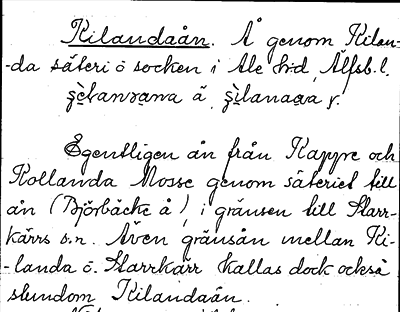 Kilandaån. Å genom Kilan-
-da säteri ö socken i Ale h:d, Älfsb. l.
å
Egentligen ån från Kappre och
Kollanda Mosse genom säteriet till
ån (Björbäcke å), i gränsen till Starr-
kärrs s:n. Även gränsån mellan Ki-
-landa o. Starrkärr kallas dock också
stundom Kilandaån.